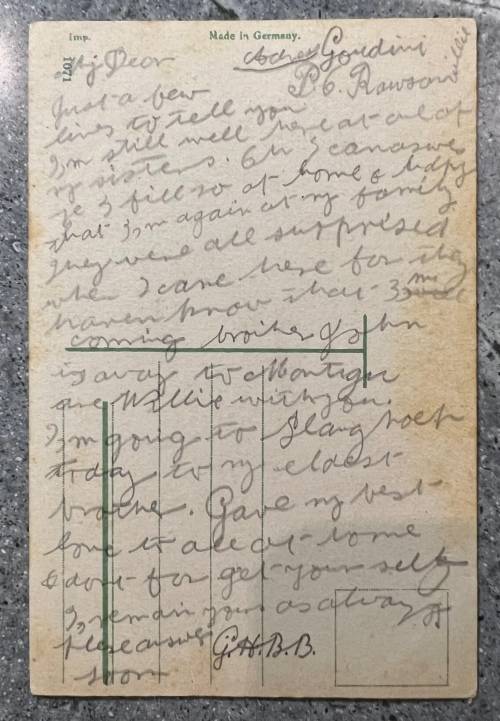 Imp.
Made in Germany.
1071
My Dear
Adres Goudini
P.O. Rawsonville
Just a few
lines to tell you
I,m still well here at one of
my sisters. Oh I can asure
ye I fill so at home & happy
that I,m again at my family
They were all surprised
when I came here for they
haven know that I,m
coming brother John
is away to Montigu
are Willie with you.
I,m going to Slanghoek
today to my eldest
brother. Gave my best
love to all at home
& dont for get your self
I, remain yours as always
Please answer
G.H.B.B.
soon